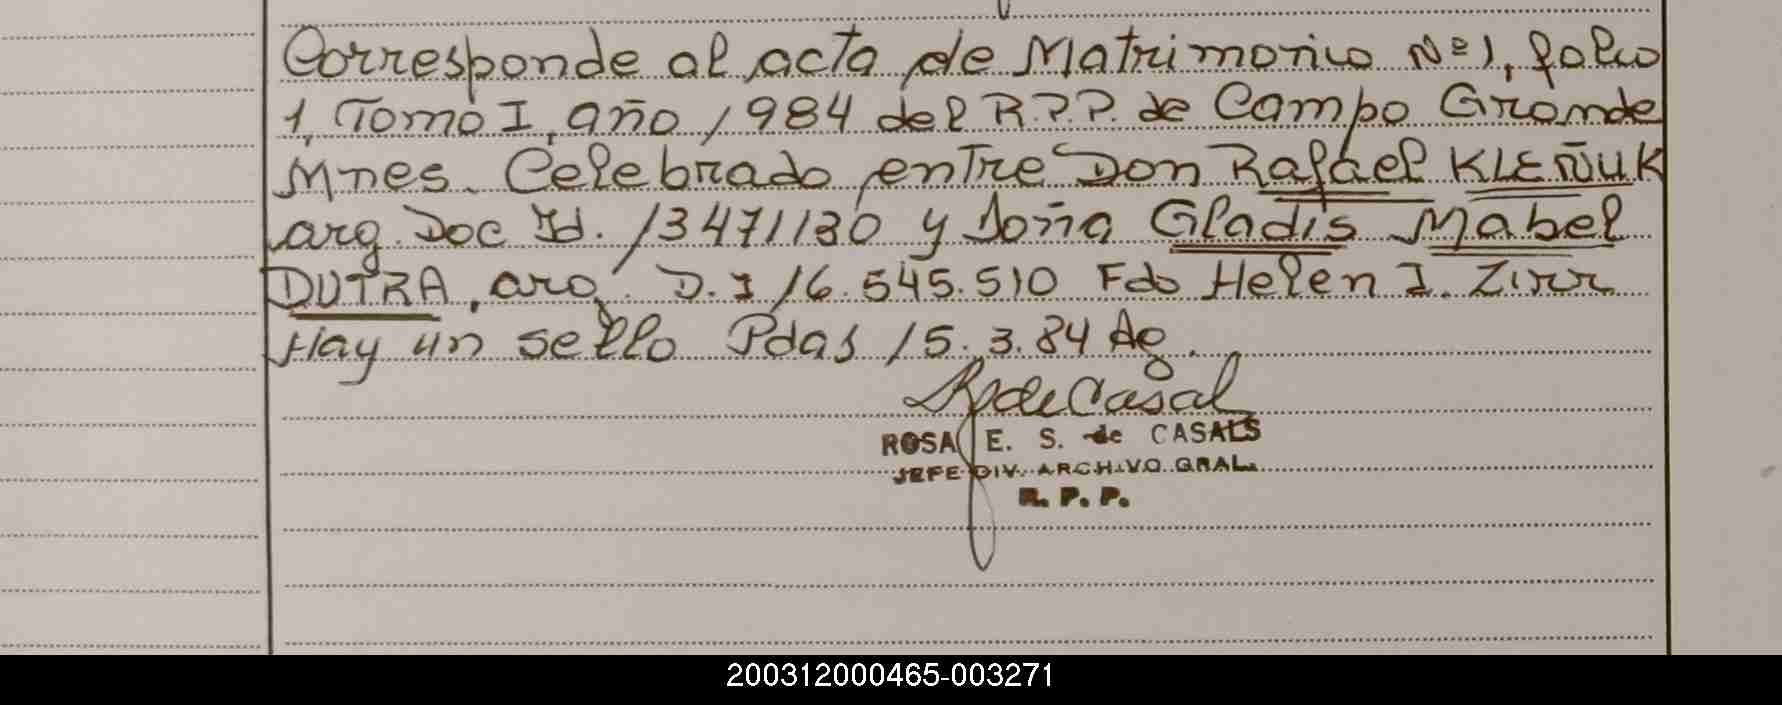 Corresponde al acta de Matrimonio Nº 1, folio
1, Tomo I, año 1984 del R.P.P. de Campo Grande
Mnes. Celebrado entre Don Rafael KLEÑUK
arg. Doc Id. 13471130 y Doña Gladis Mabel
DUTRA, arg. D.I 16.545.510 Fdo Helen I. Zirr
Hay un sello Pdas 15.3.84 Ag.
RdeCasal
ROSA E. S. de CASALS
JEFE DIV. ARCHIVO GRAL.
R. P. P.
200312000465-003271